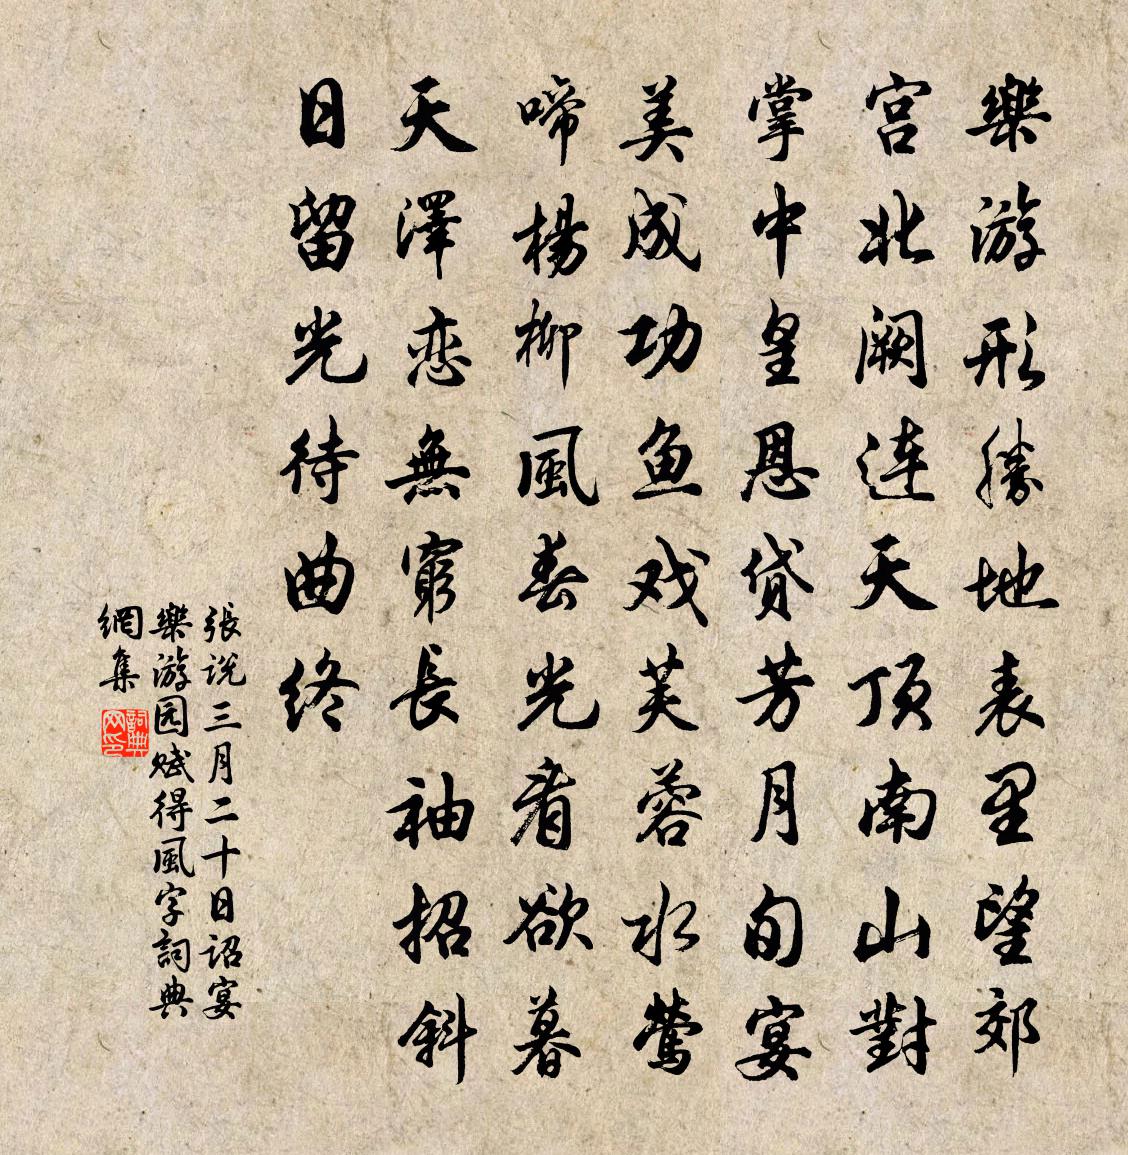 樂游形勝地表里望郊
宫北阙連天頂南山對
掌中皇恩貸芳月旬宴
美成功鱼戏芙蓉水鶯
啼楊柳風春光看欲暮
天澤恋無窮長袖招斜
日留光待曲终
張说三月二十日诏宴
樂游园赋得風字詞典
網集
詞典
网印